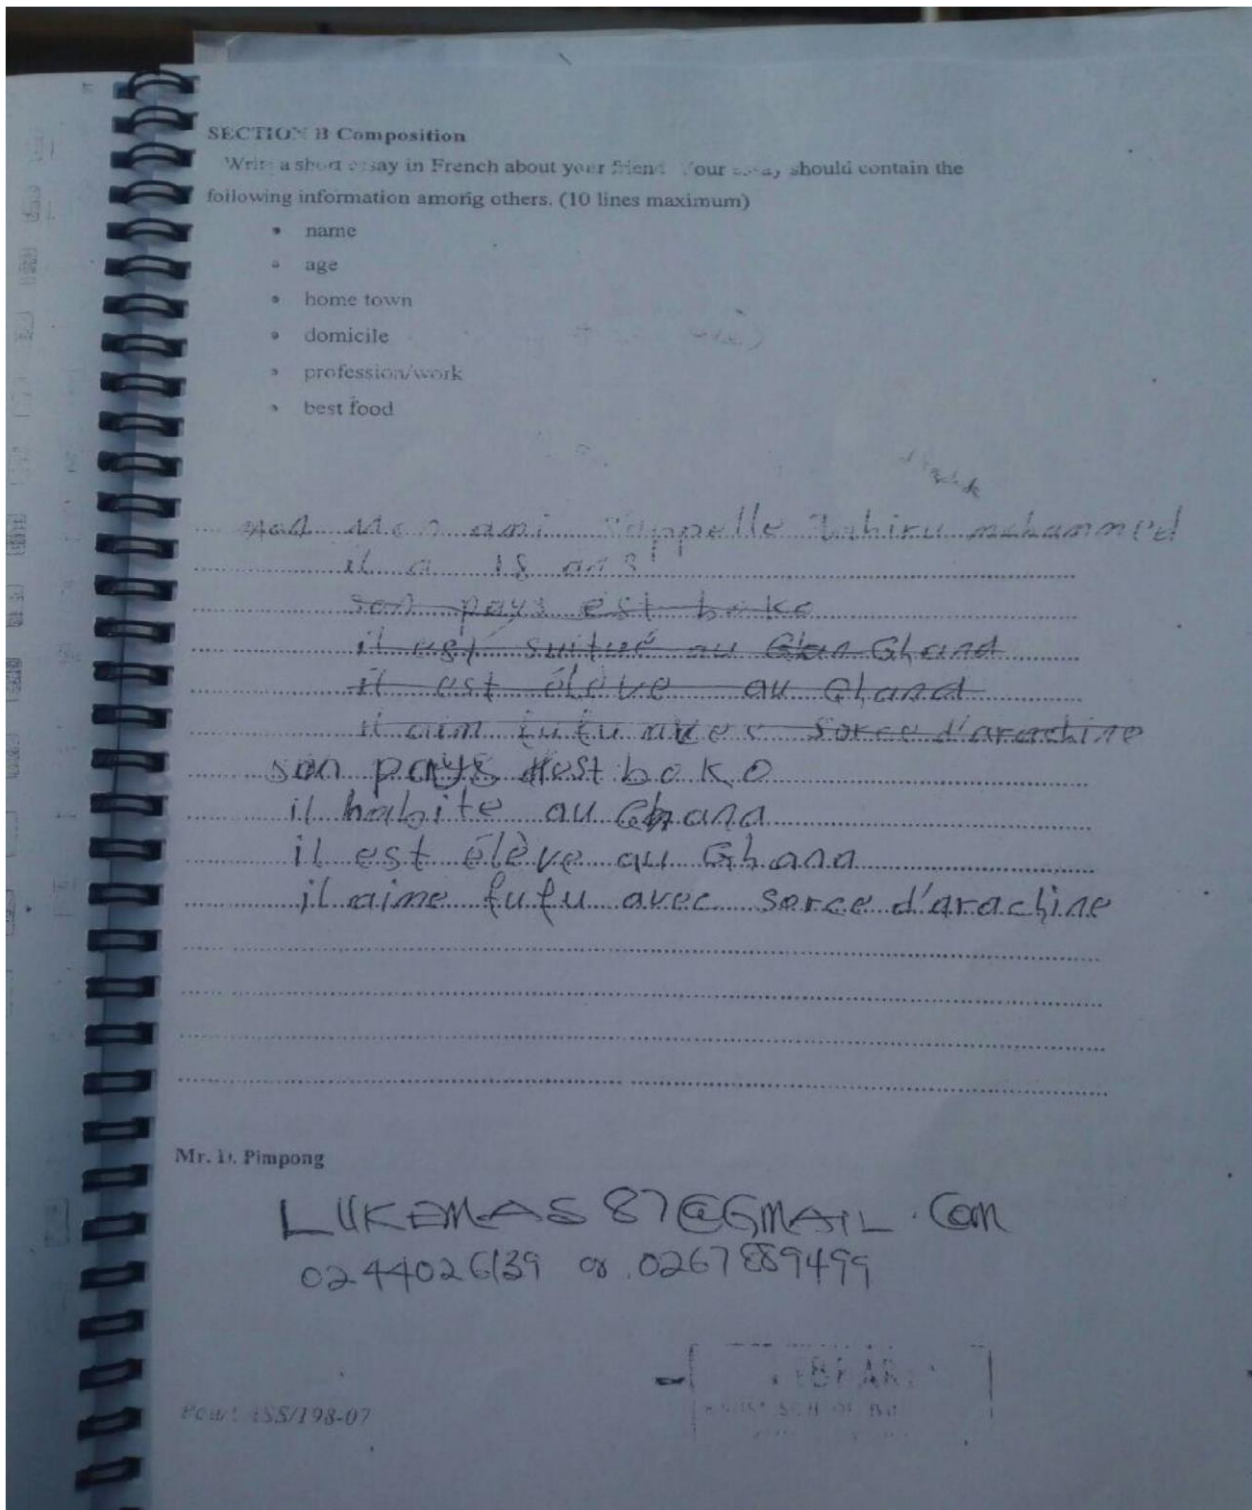 SECTION B Composition
Write a short essay in French about your friend. Your essay should contain the
following information among others. (10 lines maximum)
• name
• age
• home town
• domicile
• profession/work
• best food
Mon ami s'appelle Tahiru mohammed
il a 18 ans
son pays est boko
il est suitué au Ghana
il est élève au Ghana
il aim fufu avec sorce d'arachine
son pays est boko
il habite au Ghana
il est élève au Ghana
il aime fufu avec sorce d'arachine
Mr. D. Pimpong
LUKEMAS87@GMAIL.Com
0244026139 or 0267889499
ASS/198-07